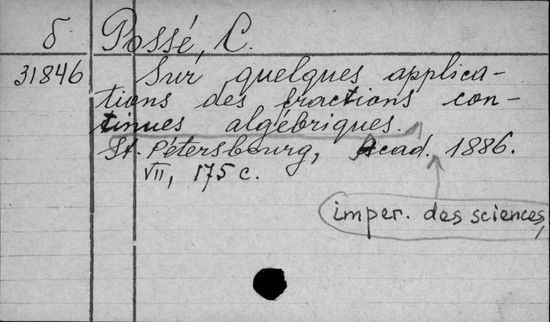 б Possé, C.
31846 Sur quelques applica-
tions des fractions con-
tinues algébriques.
St. Pétersbourg, Acad. 1886.
VII, 175 c.
imper. des sciences,